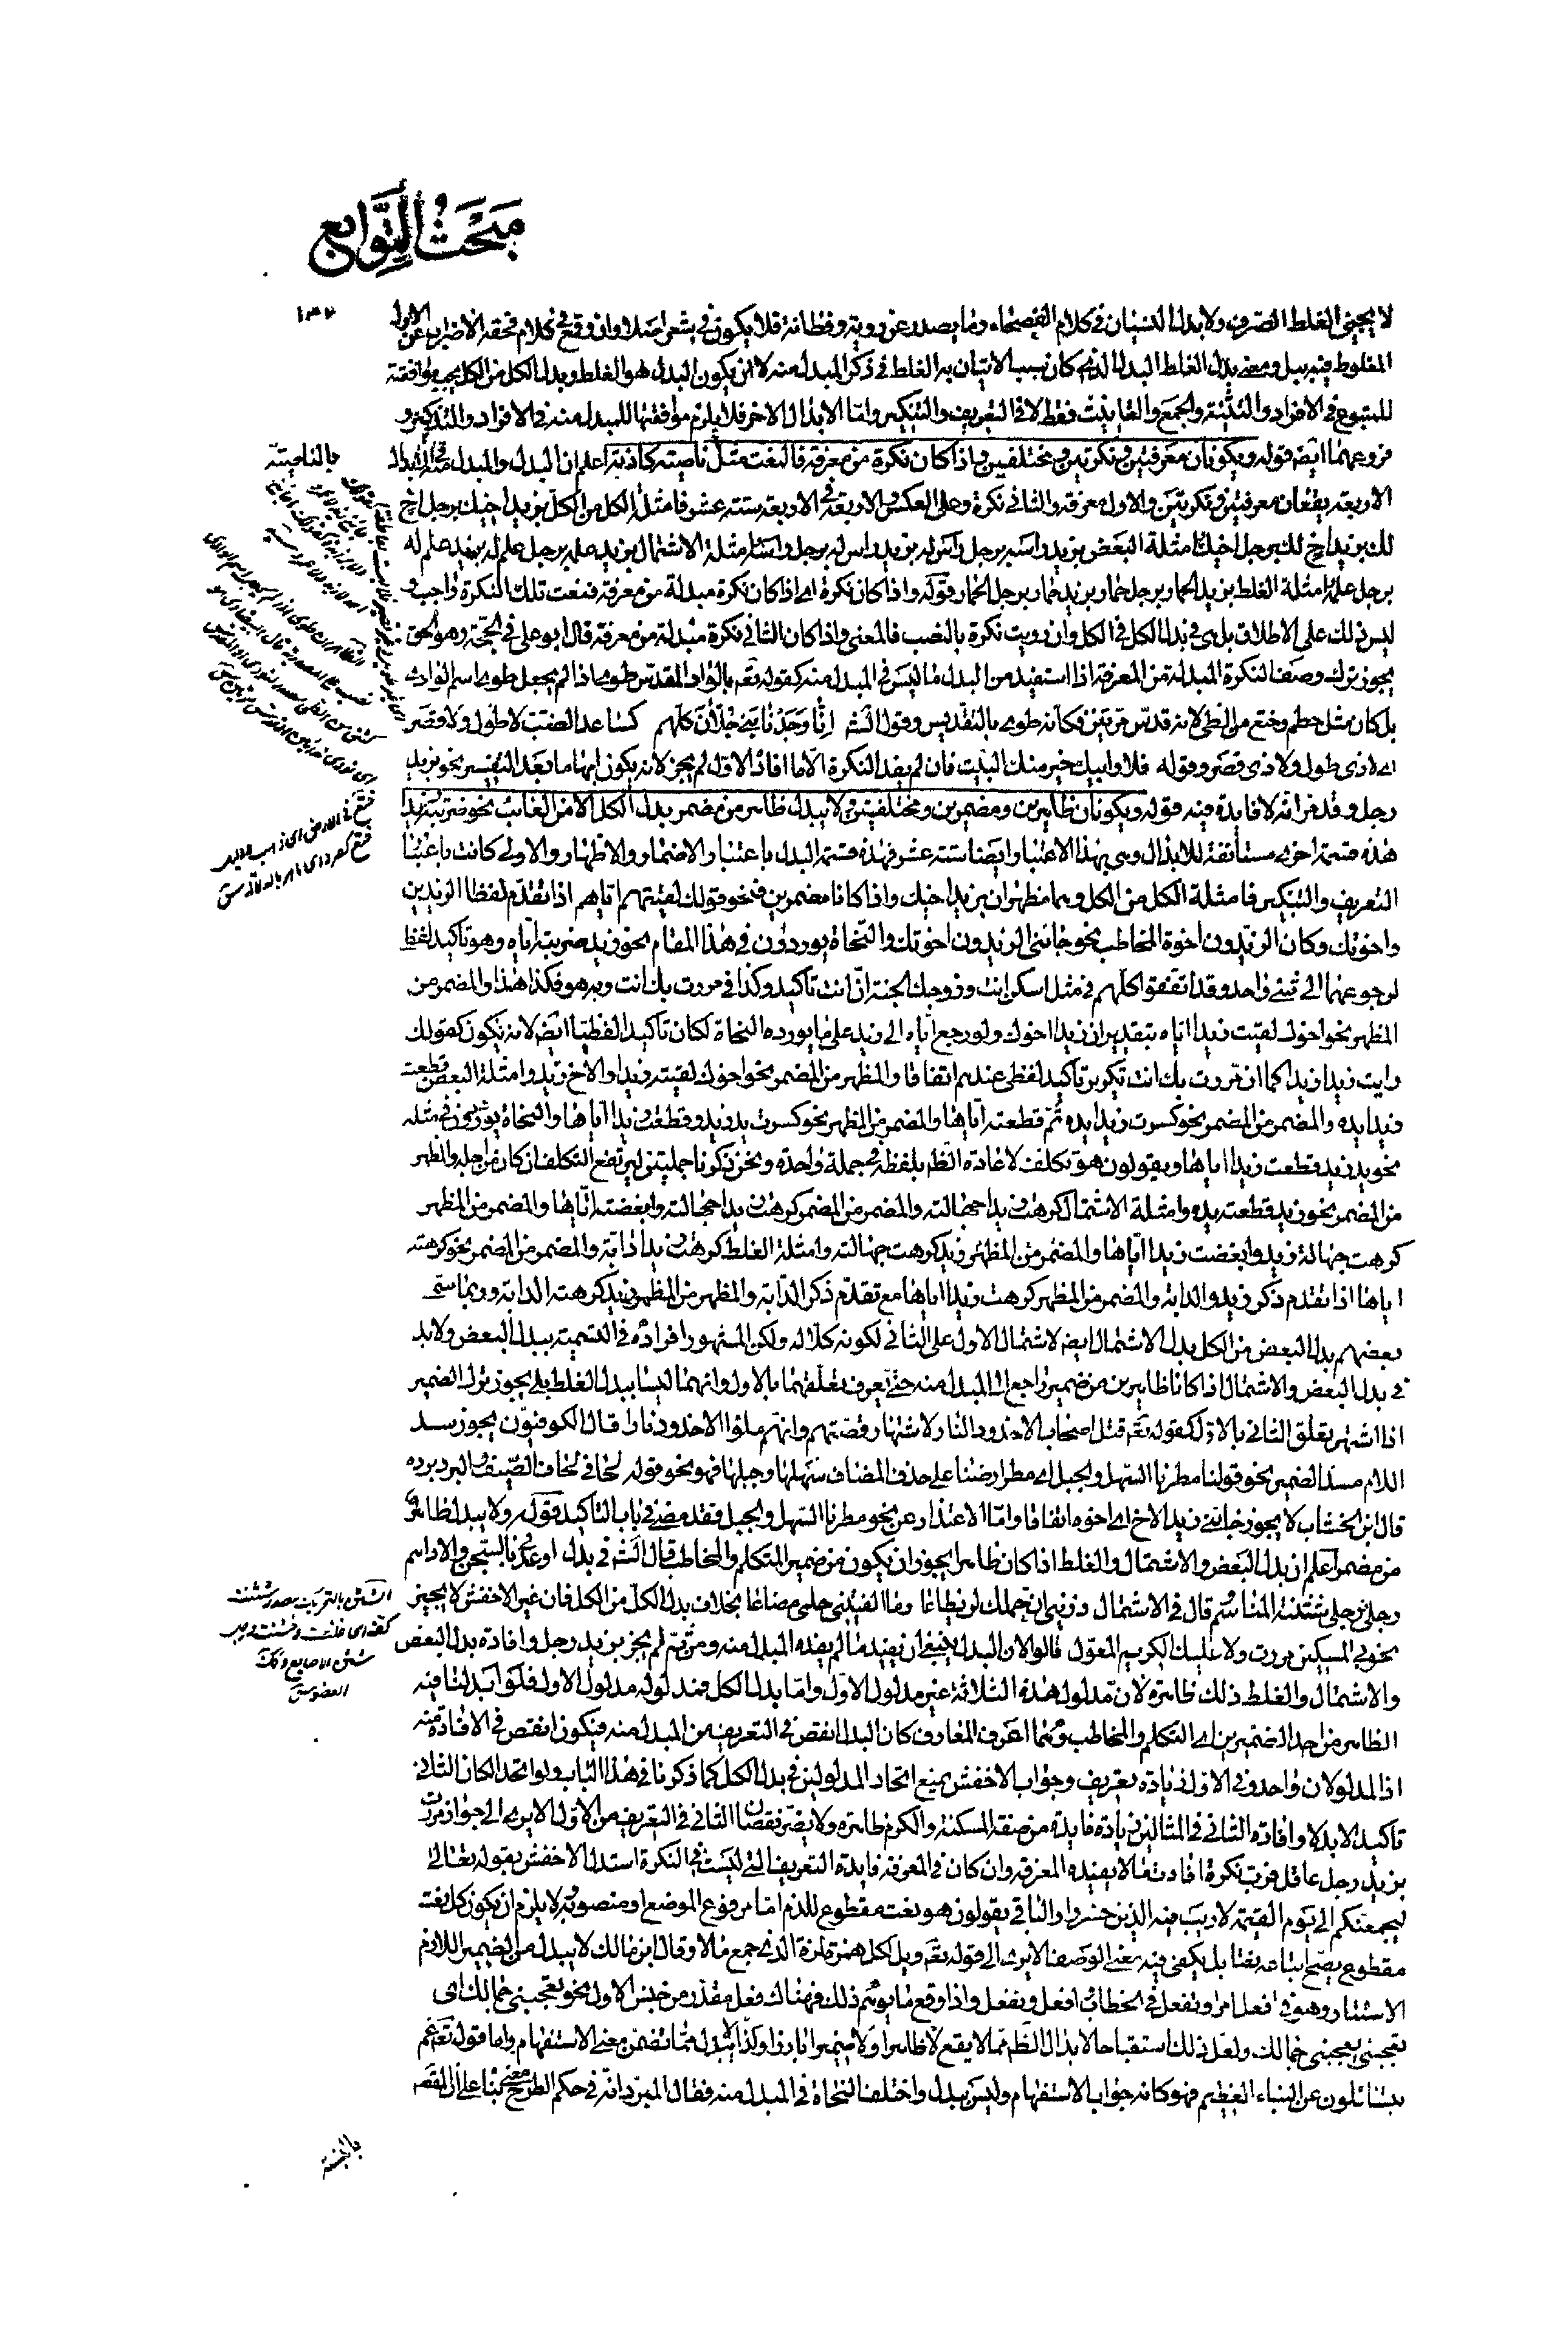 مَبْحَثُ التَّوابِع
لا يجيئ الغلط الصرف ولا بدل النسيان في كلام الفصحاء وما يصدر عن روية وفطانة فلا يكون في شعر اصلا وان وقع في كلام فحقه الاضراب عن الاول
المغلوط فيه ببل ومعنى بدل الغلط البدل الذي كان سبب الاتيان به الغلط في ذكر المبدل منه لا ان يكون البدل هو الغلط وبدل الكل من الكل يجب موافقته
للمتبوع في الافراد والتثنية والجمع والتانيث فقط لا في التعريف والتنكير واما الابدال الاخر فلا يلزم موافقتها للمبدل منه في الافراد والتذكير و
فروعهما ايضا قوله ويكونان معرفتين ونكرتين ومختلفين واذا كان نكرة من معرفة فالنعت مثل ناصية كاذبة اعلم ان البدل والمبدل منه في الابدال
الاربعة يقعان معرفتين ونكرتين والاول معرفة والثاني نكرة وعلى العكس والاربعة في الاربعة ستة عشر فامثلة الكل من الكل بزيد اخيك برجل اخ
لك بزيد اخ لك برجل اخيك امثلة البعض بزيد راسه برجل راس له بزيد راس له برجل راسه امثلة الاشتمال بزيد علمه برجل علم له بزيد علم له
برجل علمه امثلة الغلط بزيد الحمار برجل حمار بزيد حمار برجل الحمار قوله واذا كان نكرة اي اذا كان نكرة مبدلة من معرفة فنعت تلك النكرة واجب و
ليس ذلك على الاطلاق بل في بدل الكل في الكل وان رويت نكرة بالنصب فالمعنى واذا كان الثاني نكرة مبدلة من معرفة قال ابو علي في الحجة وهو الحق
يجوز ترك وصف النكرة المبدلة من المعرفة اذا استفيد من البدل ما ليس في المبدل منه كقوله تعم بالواد المقدس طوى اذا لم يجعل طوى اسم الوادي
بل كان مثل حطم وختع من الطي لانه قدس مرتين فكانه طوي بالتقديس وقول الشم انا وجدنا بني جلان كلهم كساعد الضب لا طول ولا قصر
اي لا ذي طول ولا ذي قصر وقوله فلا وابيك خير منك البيت فان لم يفد النكرة الا ما افاد الاول لم يجز لانه يكون ابهاما بعد التفسير نحو بزيد
رجل وقد مر انه لا فايدة فيه قوله ويكونان ظاهرين ومضمرين ومختلفين ولا يبدل ظاهر من مضمر بدل الكل الا من الغائب نحو ضربته زيدا
هذه قسمة اخرى مستانفة للابدال وهي بهذا الاعتبار ايضا ستة عشر فهذه قسمة البدل باعتبار الاضمار والاظهار والاولى كانت باعتبار
التعريف والتنكير فامثلة الكل من الكل وهما مظهران بزيد اخيك واذا كانا مضمرين فنحو قولك لقيتهم اياهم اذا تقدم لفظا الزيدين
واخوتك وكان الزيدون اخوة المخاطب نحو جائني الزيدون اخوتك والنحاة يوردون في هذا المقام نحو زيد ضربته اياه وهو تاكيد لفظ
لرجوعهما الى شيئ واحد وقد اتفقوا كلهم في مثل اسكن انت وزوجك الجنة ان انت تاكيد وكذا في مررت بك انت وبه هو فكذا هذا والمضمر من
المظهر نحو اخوك لقيت زيدا اياه بتقدير ان زيدا اخوك ولو رجع اياه الى زيد على ما يورده النحاة لكان تاكيدا لفظيا ايضا لانه يكون كقولك
رايت زيدا زيدا كما ان مررت بك انت تكرير تاكيد لفظي عندهم اتفاقا والمظهر من المضمر نحو اخوك لقيته زيدا والاخ زيد وامثلة البعض قطعت
زيدا يده والمضمر من المضمر نحو كسرت زيدا يده ثم قطعته اياها والمضمر من المظهر نحو كسرت يد زيد وقطعت زيدا اياها والنحاة يوردون في مثله
نحو يد زيد قطعت زيدا اياها ويقولون هو تكلف لاعادة الظم بلفظه في جملة واحدة ونحن ذكرنا جملتين ليرتفع التكلف ان كان من اجله والمظهر
من المضمر نحو زيد قطعته يده وامثلة الاشتمال كرهت زيدا جهالته والمضمر من المضمر كرهت زيدا جهالته وابغضته اياها والمضمر من المظهر
كرهت جهالة زيد وابغضت زيدا اياها والمضمر من المظهر زيد كرهت جهالته وامثلة الغلط كرهت زيدا دابة والمضمر من المضمر نحو كرهته
اياها اذا تقدم ذكر زيد والدابة والمضمر من المظهر كرهت زيدا اياها مع تقدم ذكر الدابة والمظهر من المظهر زيد كرهته الدابة وربما سمى
بعضهم بدل البعض من الكل بدل الاشتمال ايضا لاشتمال الاول على الثاني لكونه كلا له ولكن المشهور افراده في التسمية ببدل البعض ولابد
في بدل البعض والاشتمال اذا كانا ظاهرين من ضمير راجع الى المبدل منه حتى يعرف تعلقهما بالاول وانهما ليسا ببدل الغلط بلى يجوز ترك الضمير
اذا اشتهر تعلق الثاني بالاول كقوله تعم قتل اصحاب الاخدود النار لاشتهار قصتهم وانهم ملؤا الاخدود نارا وقال الكوفيون يجوز سد
اللام مسد الضمير نحو قولنا مطرنا السهل والجبل اي مطر ارضنا على حذف المضاف سهلها وجبلها فهو نحو قوله لحافي لحاف الضيف والبرد برده
قال ابن الخشاب لا يجوز جائني زيد الاخ اي اخوه اتفاقا واما الاعتذار عن نحو مطرنا السهل والجبل فقد مضى في باب التاكيد قوله ولا يبدل ظاهر
من مضمر اعلم ان بدل البعض والاشتمال والغلط اذا كان ظاهرا يجوز ان يكون من ضمير المتكلم والمخاطب قال الشم في بدل اوعدني بالسجن والاداهم
رجلي فرجلي شثنة المناسم قال في الاشتمال ذريني ان حملك لن يطاعا وما الفيتني حلمي مضاعا بخلاف بدل الكل من الكل فان غير الاخفش لا يجيز
نحو بي المسكين مررت ولا عليك الكريم المعول قالوا لان البدل ينبغي ان يفيد ما لم يفده المبدل منه ومن ثم لم يجز بزيد رجل وافادة بدل البعض
والاشتمال والغلط ذلك ظاهرة لان مدلول هذه الثلاثة غير مدلول الاول واما بدل الكل فمدلوله مدلول الاول فلو ابدلنا فيه
الظاهر من احد الضميرين اي المتكلم والمخاطب وهما اعرف المعارف كان البدل انقص في التعريف من المبدل منه فيكون انقص في الافادة منه
اذ المدلولان واحد وفي الاول زيادة تعريف وجواب الاخفش بمنع اتحاد المدلولين في بدل الكل كما ذكرنا في هذا الباب ولو اتحد الكان الثاني
تاكيدا لا بدلا وافادة الثاني في المثالين زيادة فايدة من صفة المسكنة والكرم ظاهرة ولا يضر نقصان الثاني في التعريف من الاول الا يرى الى جواز مررت
بزيد رجل عاقل فرب نكرة افادت ما لا يفيده المعرفة وان كان في المعرفة فايدة التعريف التي ليست في النكرة استدل الاخفش بقوله تعالى
ليجمعنكم الى يوم القيمة لا ريب فيه الذين خسروا والباقي يقولون هو نعت مقطوع للذم اما مرفوع الموضع او منصوبه ولا يلزم ان يكون كل نعت
مقطوع يصح اتباعه نعتا بل يكفي فيه معنى الوصف الا يرى الى قوله تعم ويل لكل همزة لمزة الذي جمع مالا وقال ابن مالك لا يبدل من الضمير اللازم
الاستتار وهو في افعل امرا وتفعل في الخطاب وافعل ونفعل واذا وقع ما يوهم ذلك فهناك فعل مقدر من جنس الاول نحو تعجبني جمالك اي
تعجبني يعجبني جمالك ولعل ذلك استقباحا لابدال الظم مما لا يقع لا ظاهرا ولا ضميرا بارزا وكذا لا يبدل مما تضمن معنى الاستفهام واما قوله تعم عم
يتسائلون عن النباء العظيم فهو كانه جواب الاستفهام وليس ببدل واختلف النحاة في المبدل منه فقال المبرد انه في حكم الطرح معنى بناء على ان المقصو